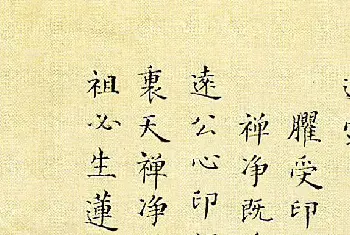 臞受印
禅净既
遠公心印
裏天禅净
祖必生蓮